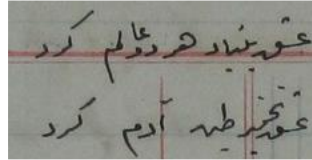 عشق بنیاد هر دو عالم کرد
عشق تخمیر طین آدم کرد